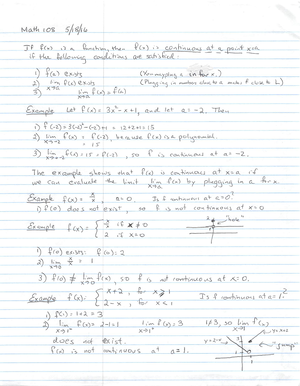 Math 108 5/18/16
If f(x) is a function, then f(x) is continuous at a point x=a
if the following conditions are satisfied:
1) f(a) exists
2) lim x→a f(x) exists (Plugging in numbers close to a makes f close to L)
3) lim x→a f(x) = f(a)
Example Let f(x) = 3x² - x + 1, and let a = -2. Then
1) f(-2) = 3(-2)² - (-2) + 1 = 12+2+1 = 15
2) lim x→-2 f(x) = f(-2), because f(x) is a polynomial.
15
3) lim x→-2 f(x) = 15 = f(-2), so f is continuous at a = -2.
The example shows that f(x) is continuous at x=a if
we can evaluate the limit lim x→a f(x) by plugging in a for x.
Example f(x) = x/x, a = 0 Is f continuous at x=0?
1) f(0) does not exist, so f is not continuous at x=0
Example f(x) = { x/x if x ≠ 0
2 if x = 0
"hole"
1) f(0) exists: f(0) = 2
2) lim x→0 x/x = 1
3) f(0) ≠ lim x→0 f(x), so f is not continuous at x=0.
Example f(x) = { x+2, for x ≥ 1
2-x, for x < 1
Is f continuous at a=1?
1) f(1) = 1+2 = 3
2) lim x→1⁻ f(x) = 2-1 = 1 lim x→1⁺ f(x) = 3 1≠3, so lim x→1 f(x)
does not exist.
f(x) is not continuous at a=1.
y=2-x
y=x+2
"jump"